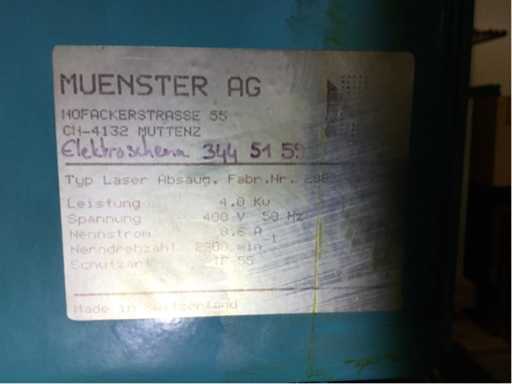 MUENSTER AG
HOFACKERSTRASSE 55
CH-4132 MUTTENZ
Elektroschema 344 51 59
Typ Laser Absaug. Fabr.Nr.
Leistung 4.0 Kw
Spannung 400 V 50 Hz
Nennstrom 8.6 A
Nenndrehzahl min-1
Schutzart IP 55
Made in Switzerland